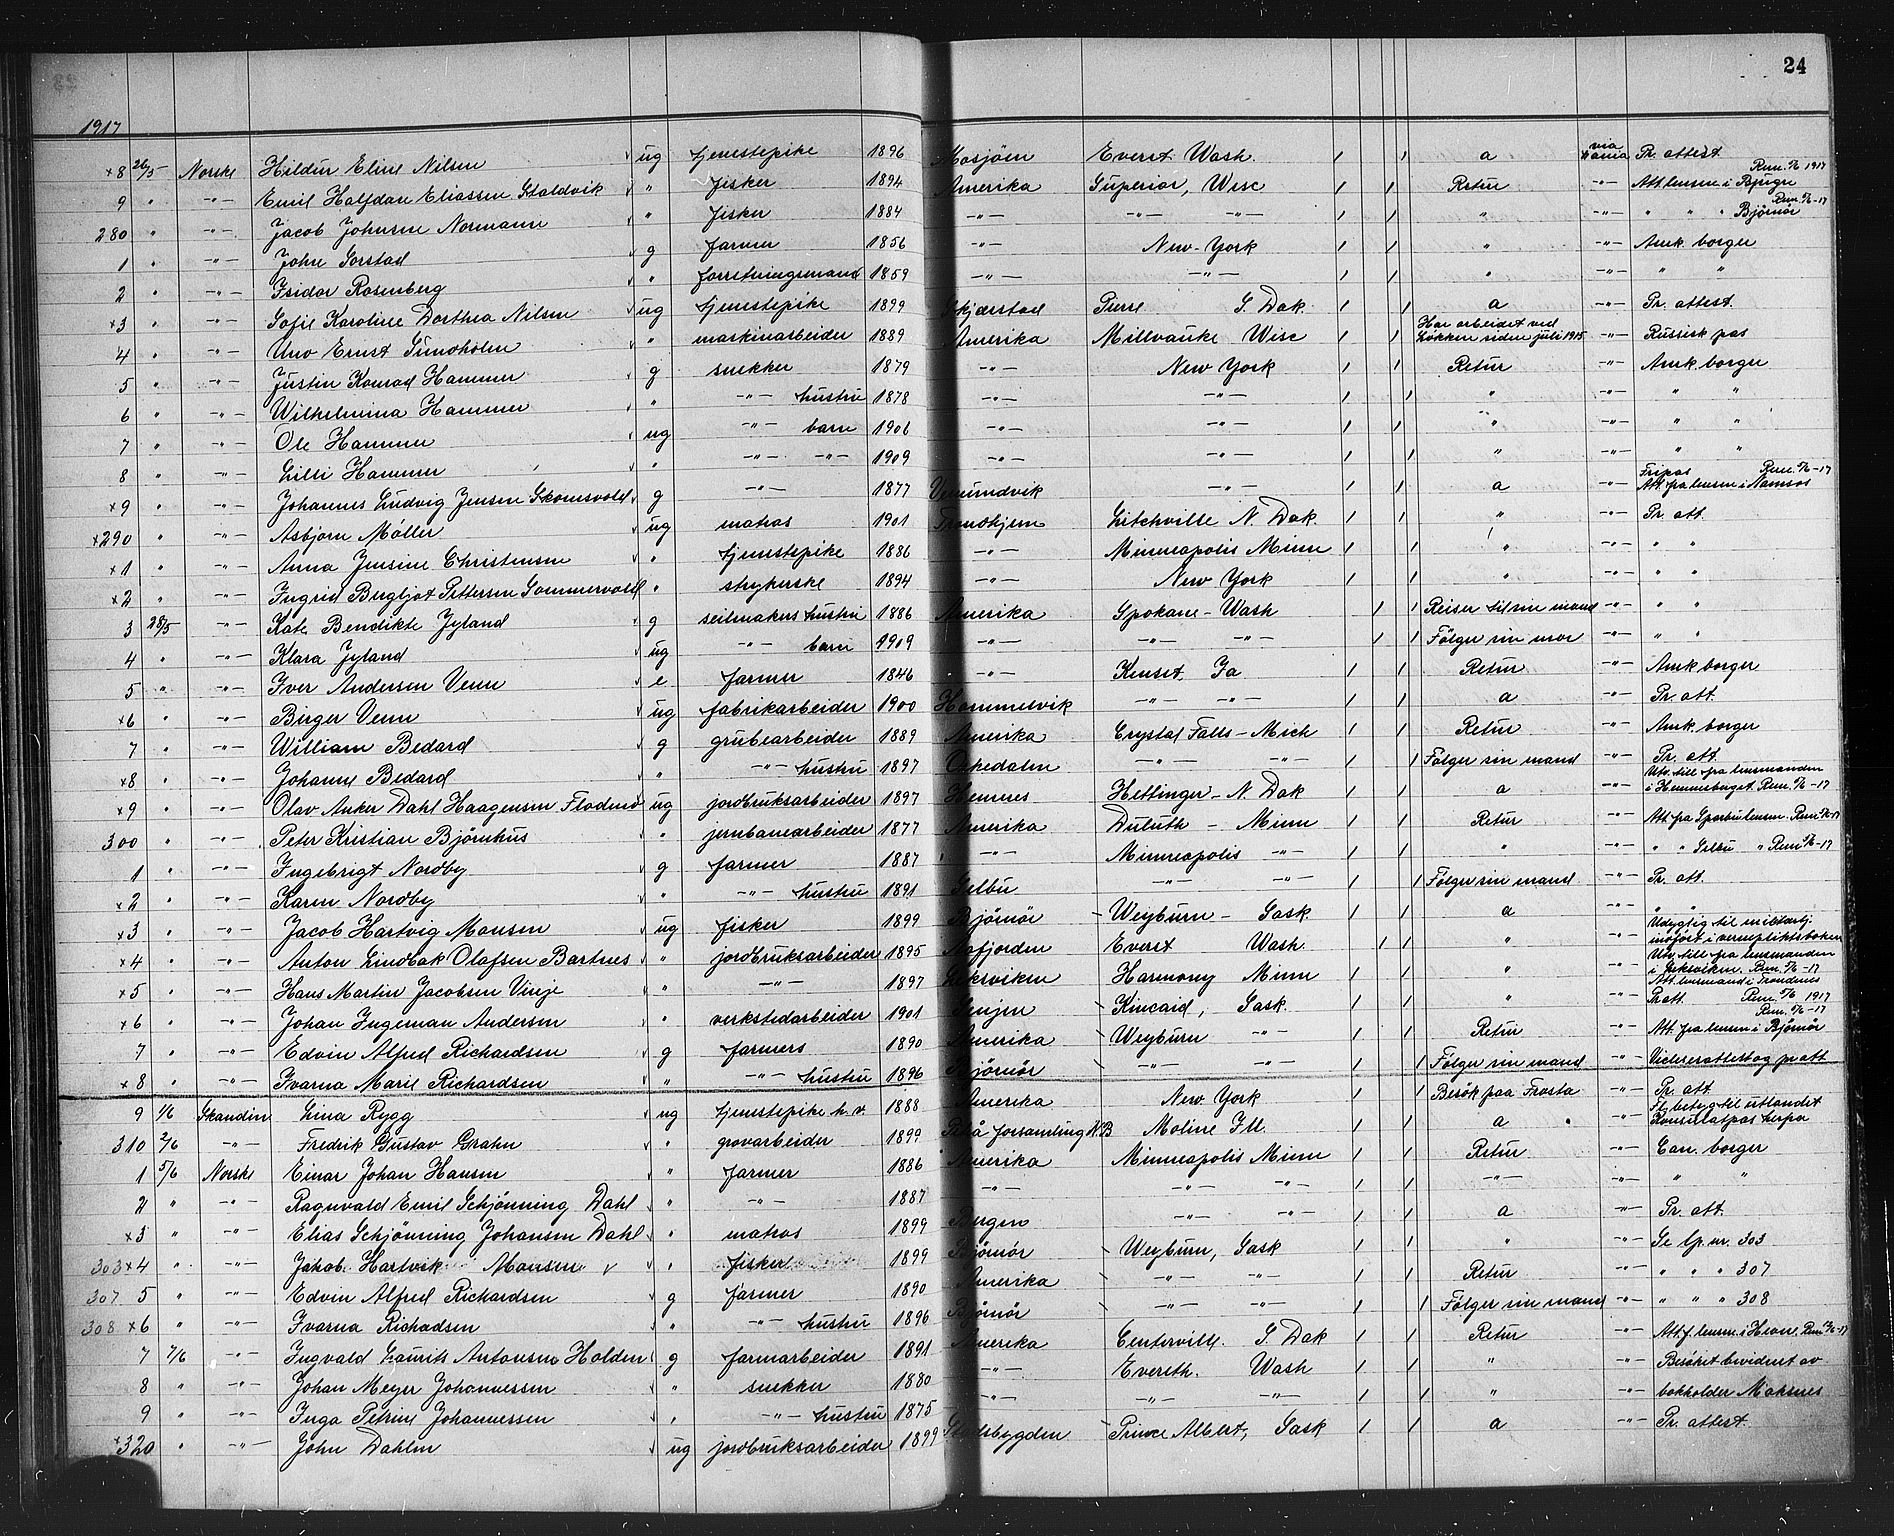 24
1917
x8 26/5 Norske Hildur Eline Nilsen ug tjenestepike 1896 Mosjöen Everet Wash. / / a via Kania Pr. attest.
9 " -"- Emil Halfdan Eliassen Staldvik " fisker 1894 Amerika Superior, Wisc / / Retur -"- Att. lensm. i Bjugn Rem. 5/6 1917
280 " -"- Jacob Johnsen Normann " fisker 1884 -"- -"- -"- / / " -"- " " " Björnör Rem. 5/6-17
1 " -"- John Sorstad g farmer 1856 -"- New-York / / " -"- Amk. borger
2 " -"- Isidor Rosenberg " forretningsmand 1859 -"- -"- / / " -"- " "
x3 " -"- Sofie Karoline Dorthea Nilsen ug tjenestepike 1899 Skjærstad Pierre S. Dak. / / a -"- Pr. attest.
4 " -"- Uno Ernst Sundholm " maskinarbeider 1889 Amerika Millvauke Wisc / / Har arbeidet ved Lökken siden juli 1915 -"- Russisk pas
5 " -"- Justin Konrad Hammer g snekker 1879 -"- New York / / Retur -"- Amk. borger
6 " -"- Wilhelmina Hammer " -"- hustru 1878 -"- -"- / / " -"- " "
7 " -"- Ole Hammer ug -"- barn 1906 -"- -"- / / " -"- " "
8 " -"- Lilli Hammer " -"- -"- 1909 -"- -"- / / " -"- " "
x9 " -"- Johannes Ludvig Jensen Skomsvold g -"- 1877 Vemundvik -"- / / a -"- Fripas Att. fra lensm. i Namsos Rem. 5/6-17
x290 " -"- Asbjorn Möller ug matros 1901 Trondhjem Litchville N. Dak. / / " -"- Pr. att.
x1 " -"- Anna Jensine Christensen " tjenestepike 1886 -"- Minneapolis Minn / / " -"- " "
x2 " -"- Ingrid Bergljot Pettersen Sommervold " strykerske 1894 -"- New York / / " -"- " "
3 28/5 -"- Kate Bendikte Jyland g seilmakers hustru 1886 Amerika Spokane-Wash / / Reiser til sin mand -"- " "
4 " -"- Klara Jyland ug -"- barn 1909 -"- -"- -"- / / Fölger sin mor -"- " "
5 " -"- Iver Andersen Venn e farmer 1846 -"- Kenset Ia / / Retur -"- Amk borger
x6 " -"- Birger Venn ug fabrikarbeider 1900 Hommelvik -"- -"- / / a -"- Pr. att.
7 " -"- William Bedard g grubearbeider 1889 Amerika Crystal Falls-Mich / / Retur -"- Amk. borger
x8 " -"- Johanne Bedard " -"- hustru 1897 Orkedalen -"- -"- / / Fölger sin mand -"- Pr. att.
x9 " -"- Olav Anker Dahl Haagensen Flodmo ug jordbruksarbeider 1897 Hemnes Hettinger-N. Dak / / a -"- Utv. till. fra lensmanden i Hemnesberget Rem. 5/6-17
300 " -"- Peter Kristian Björnhus " jernbanearbeider 1877 Amerika Duluth - Minn / / Retur -"- Att fra Sparbu lensm. Rem 5/6-17
1 " -"- Ingebrigt Nordby g farmer 1887 -"- Minneapolis -"- / / " -"- " " Selbu " Rem 5/6-17
x2 " -"- Karen Nordby " -"- hustru 1891 Selbu -"- -"- / / Fölger sin mand -"- Pr. att.
x3 " -"- Jacob Hartvig Monsen ug fisker 1899 Björnör - Weyburn - Sask. / / a -"- " "
x4 " -"- Anton Lindbak Olafsen Bartnes " jordbruksarbeider 1895 Aafjorden Everet Wash. / / " -"- Udygtig til militærtj indfört i vernepliktsboken
x5 " -"- Hans Martin Jacobsen Vinje " -"- 1897 Leksviken Harmony Minn / / " -"- Utv. till fra lensmanden i Leksviken. Rem. 5/6-17
x6 " -"- Johan Ingeman Andersen " verkstedarbeider 1901 Senjen Kincaid, Sask. / / " -"- Att. lensmand i Trondenes Pr att. Rem. 5/6 1917
7 " -"- Edvin Alfred Richardsen g farmers 1890 Amerika Weyburn -"- / / Retur -"- Att. fra lensm. i Björnör Rem. 5/6-17
x8 " -"- Ivarna Marie Richardsen " -"- hustru 1896 Björnör -"- -"- / / Fölger sin mand -"- Vielsesattest og pr att
9 1/6 Skandin Lina Rygg ug tjenestepike h.v. 1888 Amerika New York / / Besök paa Frosta -"- Pr. att.
310 2/6 -"- Fredrik Gustav Grahn " grovarbeider 1899 forsamling N.B Moline Ill / / a -"- Flbetyg til utlandet Konsulatpas
1 5/6 Norske Einar Johan Hansen " farmer 1886 Amerika Minneapolis Minn / / Retur -"- Can. borger
2 " -"- Ragnvald Emil Schjönning Dahl " -"- 1887 -"- -"- -"- / / -"- -"- " "
x3 " -"- Elias Schjönning Johansen Dahl " matros 1899 Bergen -"- -"- / / a -"- Pr. att.
303 x4 " -"- Jakob Hartvik Monsen " fisker 1899 Björnör Weyburn, Sask / / " -"- Se lp. nr. 303
307 5 " -"- Edvin Alfred Richardsen g farmer 1890 Amerika -"- -"- / / Retur -"- " " " 307
308 x6 " -"- Ivarna Richadsen " -"- hustru 1896 Björnör -"- -"- / / Fölger sin mand -"- " " " 308
7 7/6 -"- Ingvald Laurits Antonsen Holden g farmarbeider 1891 Amerika Centerville. S. Dak / / Retur -"- Att. f. lensm. i Hevne. Rem. 5/6-17
8 " -"- Johan Meyer Johannessen " snekker 1880 -"- Evereth. Wash / / " -"- Besöket bevidnet av
9 " -"- Inga Petrine Johannessen " -"- hustru 1875 -"- -"- -"- / / " -"- bokholder Moksnes
x320 " -"- John Dahlen ug jordbruksarbeider 1899 Stadsbygden Prince Albert, Sask / / a -"- Pr. attest.